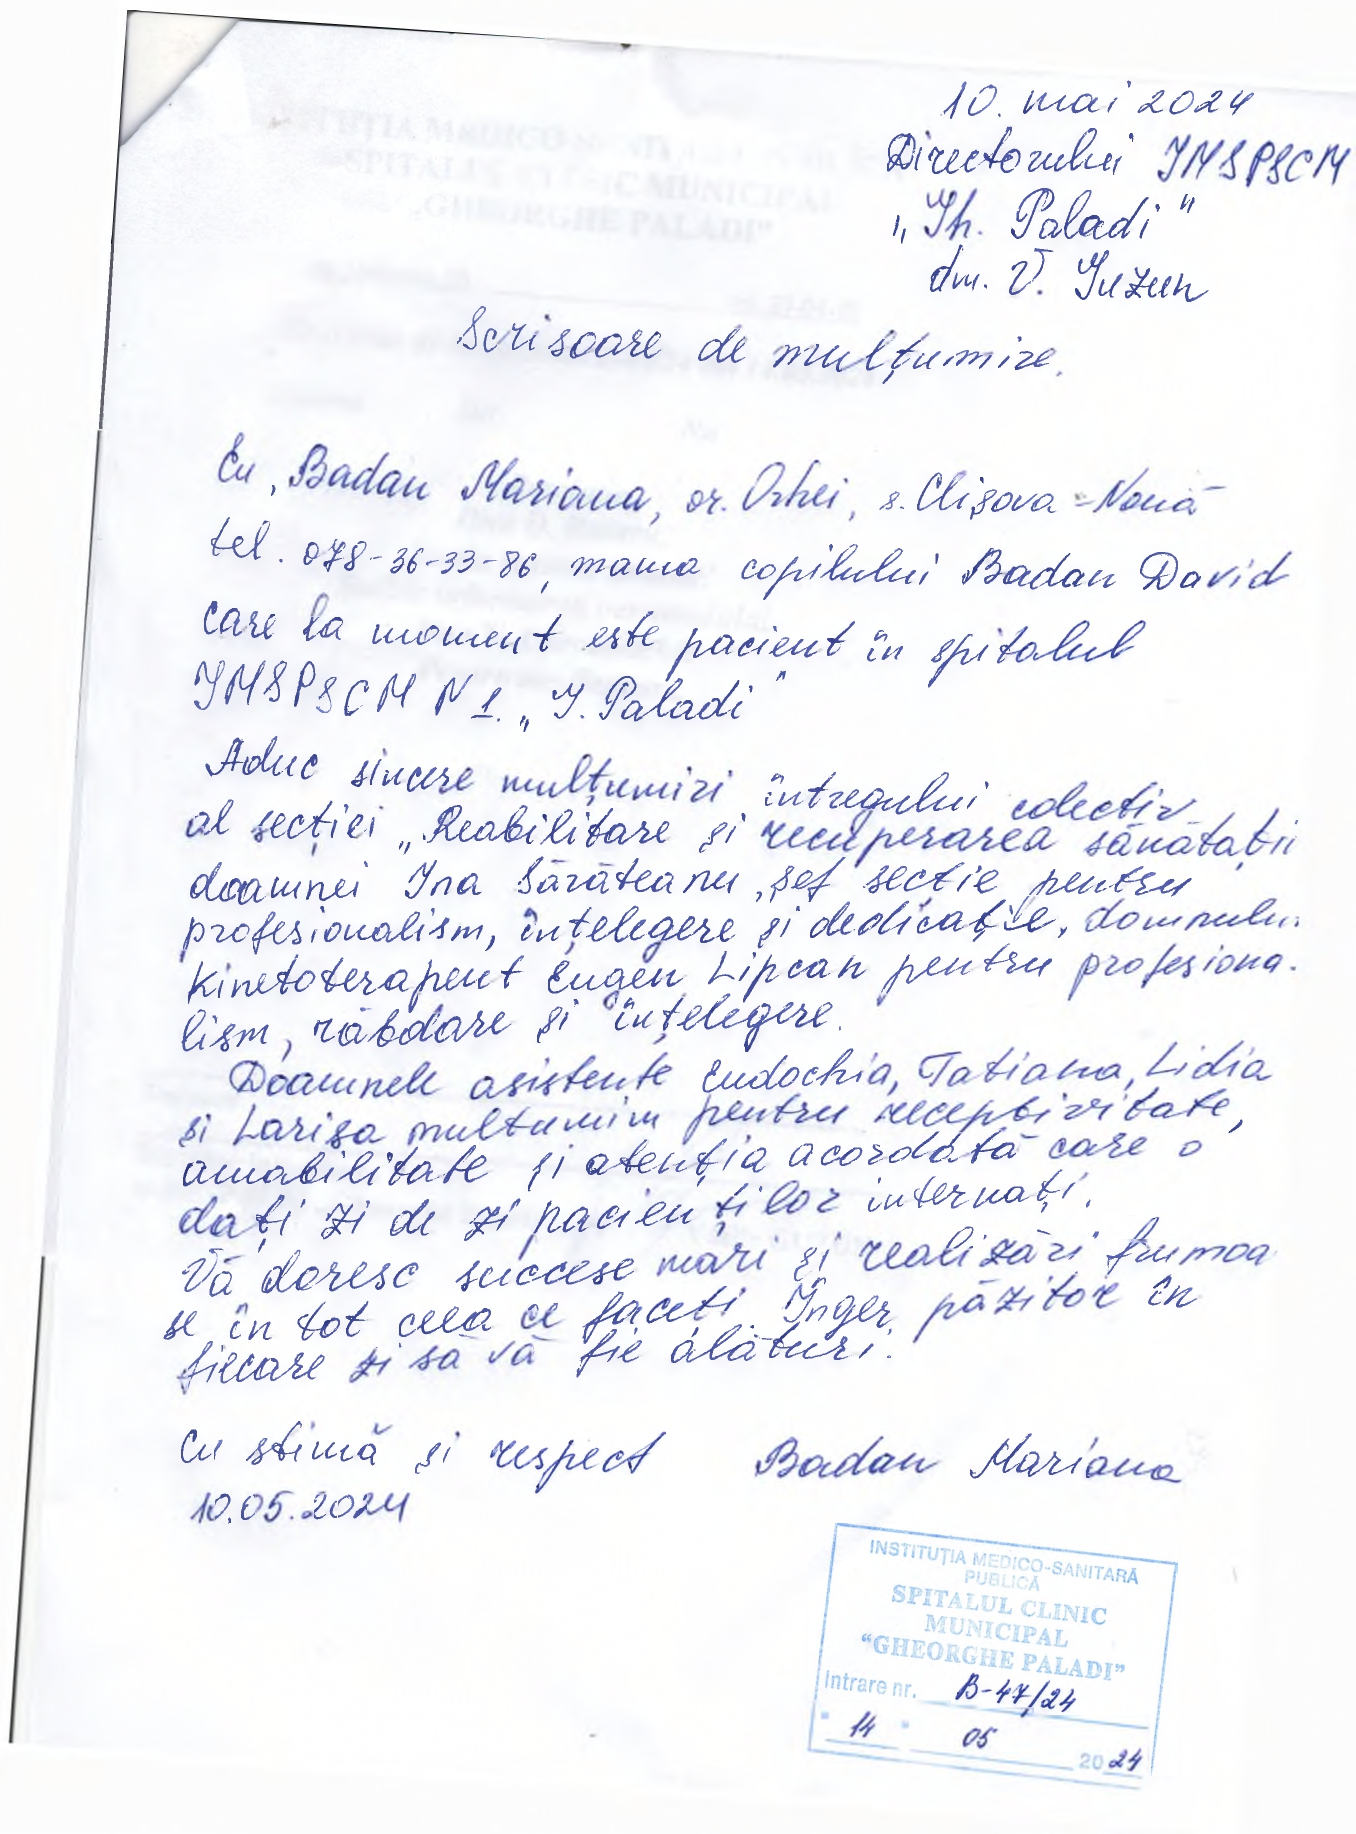 10. mai 2024
Directorului IMSPSCM
„Gh. Paladi"
dm. V. Guzun
Scrisoare de mulțumire.
Eu, Badan Mariana, or. Orhei, s. Clișova-Nouă
tel. 078-36-33-86, mama copilului Badan David
care la moment este pacient în spitalul
IMSPSCM N 1. „G. Paladi"
Aduc sincere mulțumiri întregului colectiv
al secției „Reabilitare și recuperarea sănătații
doamnei Ina Sărăteanu, șef secție pentru
profesionalism, înțelegere și dedicație, domnului
Kinetoterapeut Eugen Lipcan pentru profesiona-
lism, răbdare și înțelegere.
Doamnele asistente Eudochia, Tatiana, Lidia
și Larisa multumim pentru receptivitate,
amabilitate și atenția acordată care o
dați zi de zi pacienților internați.
Vă doresc succese mari și realizări frumoa
se în tot ceea ce faceți. Înger păzitor în
fiecare zi să vă fie alături.
Cu stimă și respect Badan Mariana
10.05.2024
INSTITUȚIA MEDICO-SANITARĂ
PUBLICĂ
SPITALUL CLINIC
MUNICIPAL
“GHEORGHE PALADI”
Intrare nr. B-47/24
" 14 " 05 2024